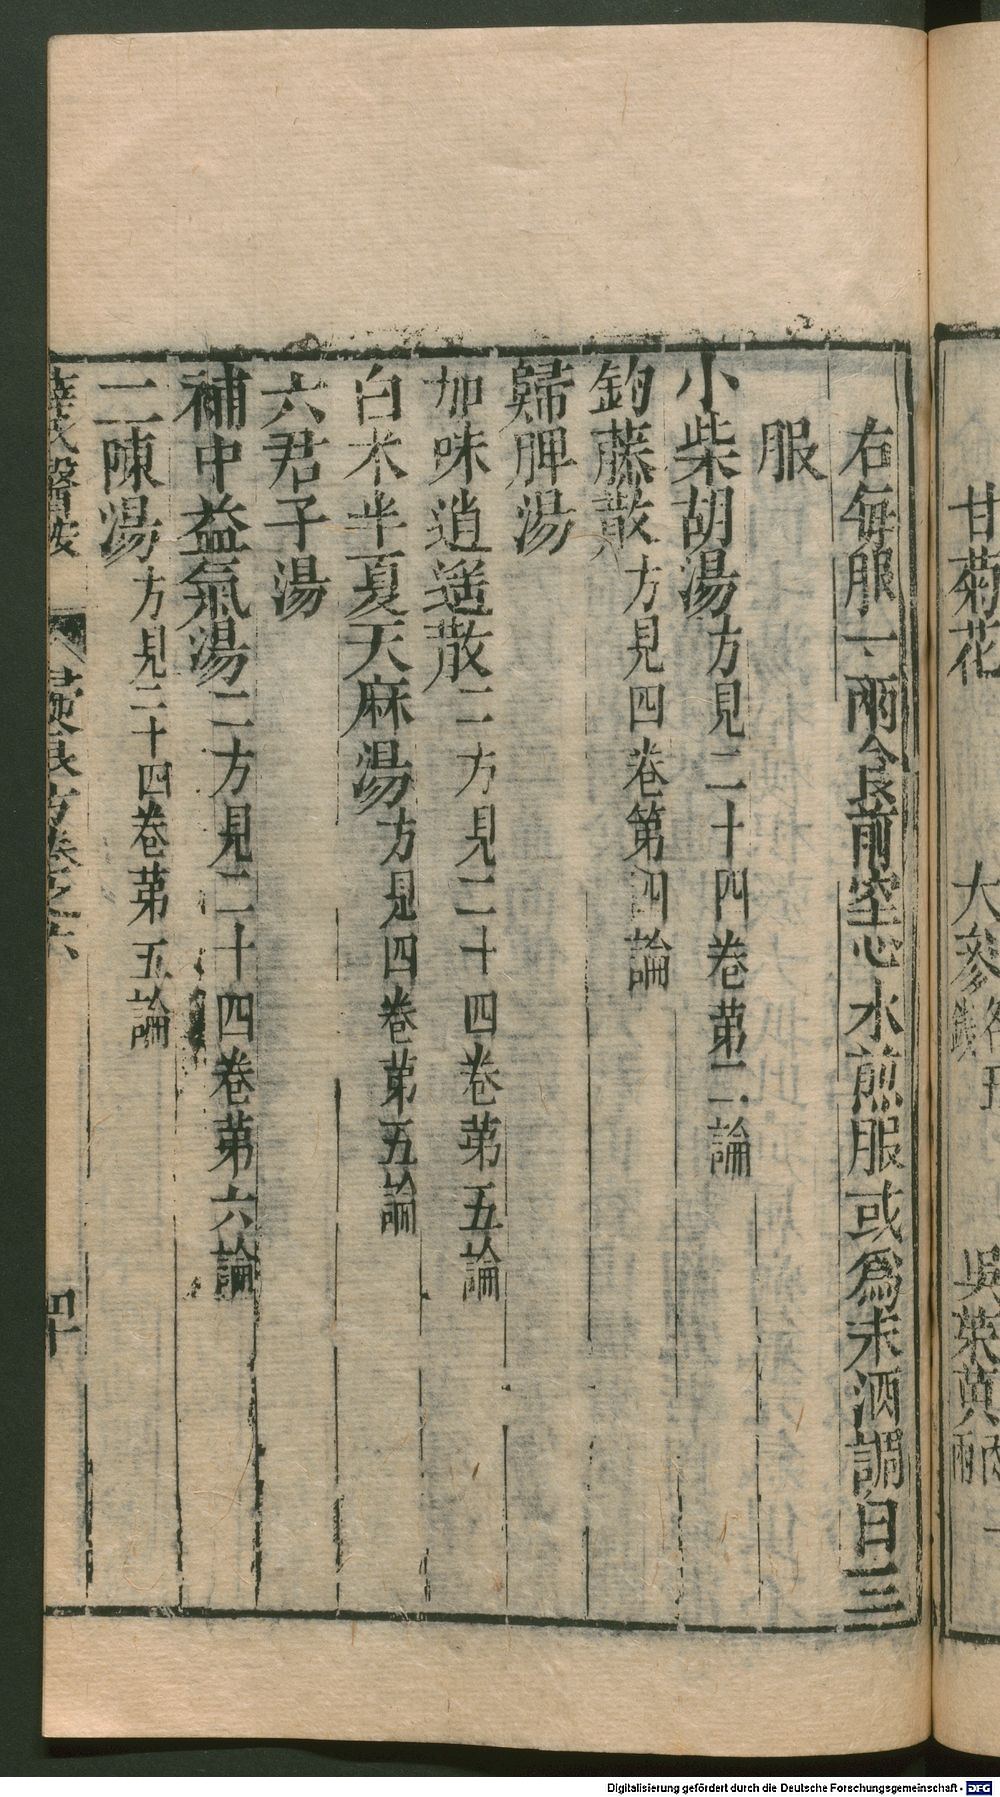 甘菊花 吳茱萸
右每服一兩食前空心水煎服或爲末酒調日二三
服
小柴胡湯方見二十四卷第二論
鈎藤散方見四卷第四論
歸脾湯
加味逍遥散二方見二十四卷第五論
白术半夏天麻湯方見四卷第五論
六君子湯
補中益氣湯二方見二十四卷第六論
二陳湯方見二十四卷第五論
薛氏醫按 四十
Digitalisierung gefördert durch die Deutsche Forschungsgemeinschaft - DFG